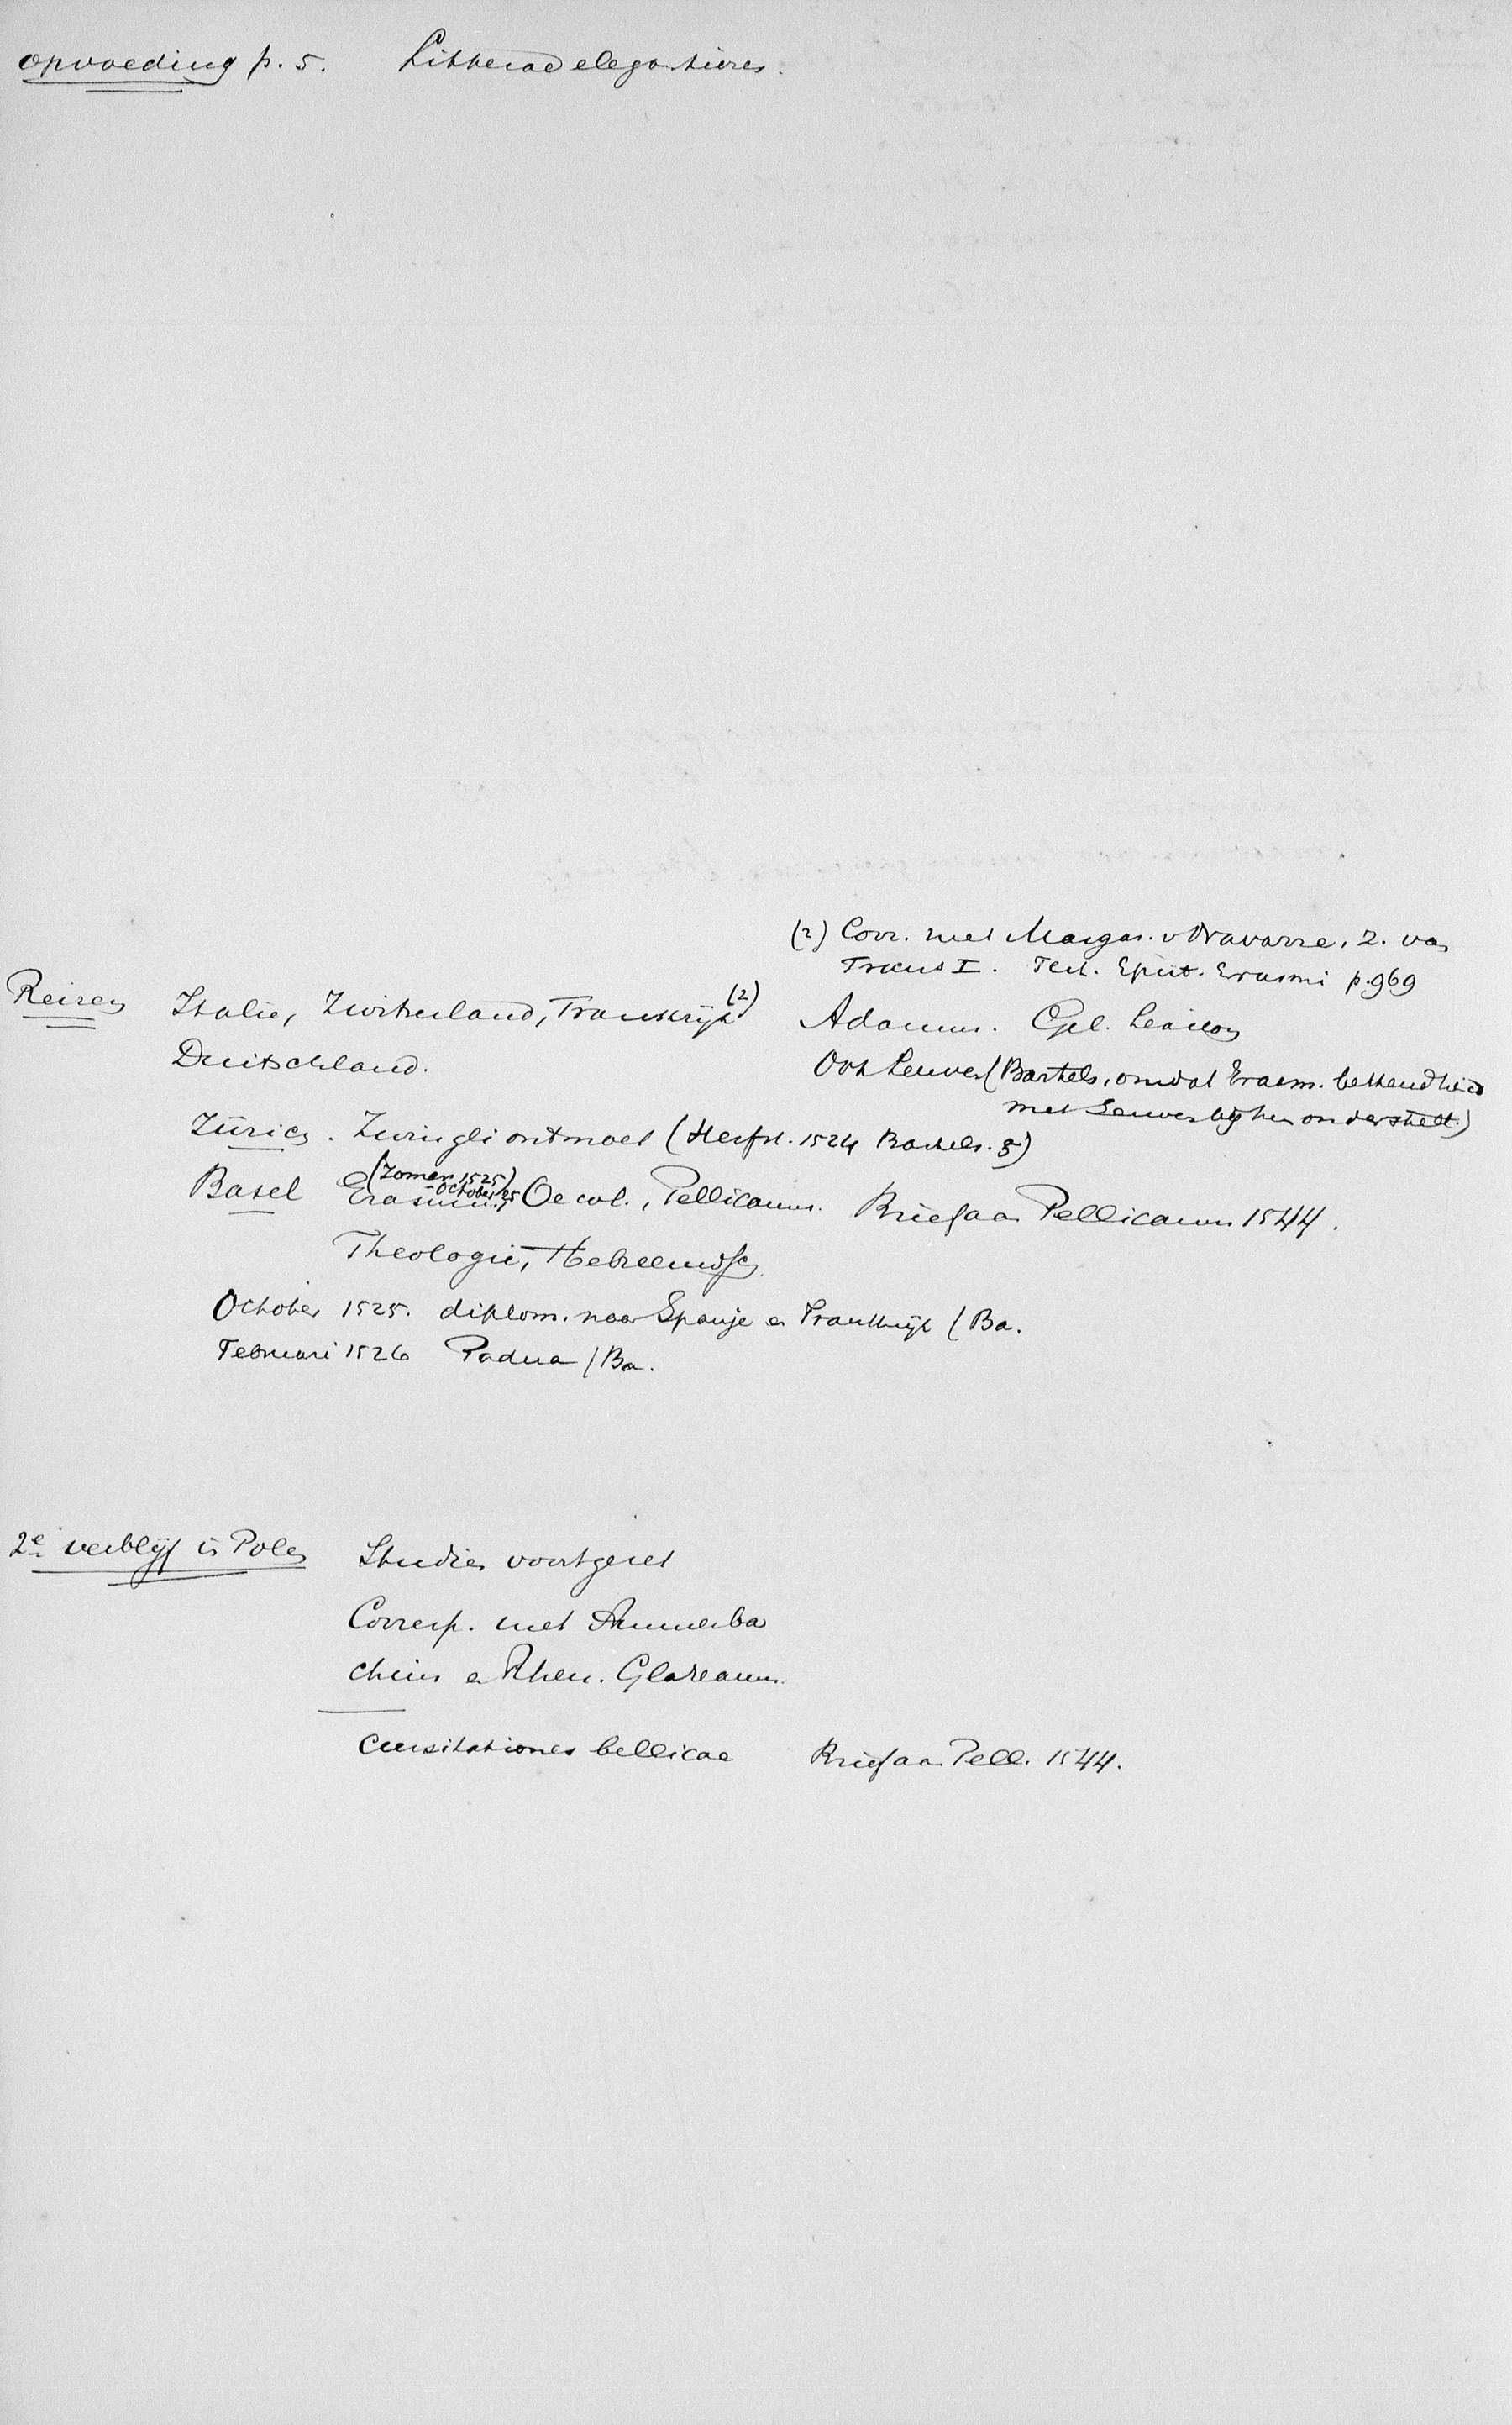 opvoeding p. 5. Litterae elegantiores.
(2) Corr. met Margar. v Navarre, Z. van
Frans I. Tert. Epist. Erasmi p. 969
Reizen Italie, Zwitserland, Frankrijk (2)
Adamus. Gel. Lexicon
Duitschland.
Ook Leuven (Bartels, omdat Erasm. bekendheid
met Leuven bij hem onderstelt.)
Zürich. Zwingli ontmoet (Herfst. 1524 Bartels. 8)
(Zomer 1525)
- October 25
Basel Erasmus, Oecol., Pellicanus. Brief aan Pellicanus 1544.
Theologie, Hebreeuwsch.
October 1525. diplom. naar Spanje en Frankrijk (Ba.
Februari 1526 Padua (Ba.
2e verblijf in Polen Studien voortgezet
Corresp. met Ammerba
chius en Rhen. Glareanus.
Cursitationes bellicae Brief aan Pell. 1544.